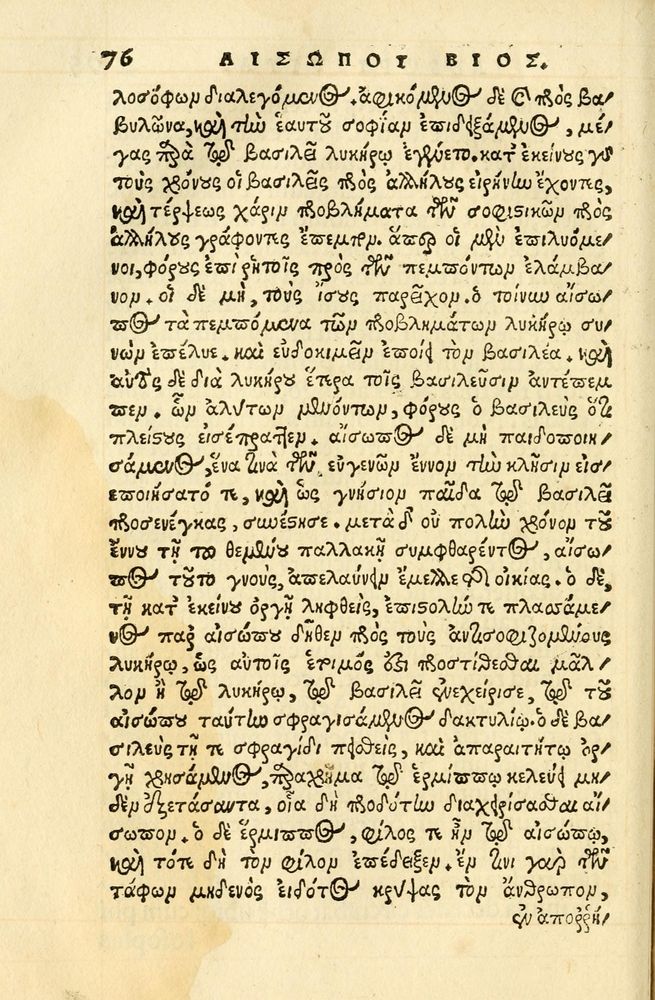 76 ΑΙΣΩΠΟΥ ΒΙΟΣ.
λοσόφων διαλεγόμενος. ἀφικόμενος δὲ καὶ πρὸς Βα-
βυλῶνα, καὶ τὴν ἑαυτοῦ σοφίαν ἐπιδειξάμενος, μέ-
γας παρὰ τῷ βασιλεῖ λυκήρῳ ἐγένετο. κατ' ἐκείνους γὰρ
τοὺς χρόνους οἱ βασιλεῖς πρὸς ἀλλήλους εἰρήνην ἔχοντες,
καὶ τέρψεως χάριν προβλήματα τῶν σοφιστικῶν πρὸς
ἀλλήλους γράφοντες ἔπεμπον. ἅπερ οἱ μὲν ἐπιλυόμε-
νοι, φόρους ἐπὶ ῥητοῖς πρὸς τῶν πεμπόντων ἐλάμβα-
νον. οἱ δὲ μὴ, τοὺς ἴσους παρεῖχον. ὁ τοίνυν αἴσω-
πος τὰ πεμπόμενα τῶν προβλημάτων λυκήρῳ συ-
νῶν ἐπέλυε. καὶ εὐδοκιμεῖν ἐποίει τὸν βασιλέα. καὶ
αὐτὸς δὲ διὰ λυκήρου ἕτερα τοῖς βασιλεῦσιν ἀντέπεμ
πεν. ὧν ἀλύτων μενόντων, φόρους ὁ βασιλεὺς ὅτι
πλείστους εἰσέπραττεν. αἴσωπος δὲ μὴ παιδοποιη-
σάμενος, ἕνα τινὰ τῶν εὐγενῶν ἔννον τὴν κλῆσιν εἰσ-
εποιήσατό τε, καὶ ὡς γνήσιον παῖδα τῷ βασιλεῖ
προσενέγκας, συνέστησε. μετὰ δ' οὐ πολὺν χρόνον τοῦ
ἔννου τῇ τοῦ θεμένου παλλακῇ συμφθαρέντος, αἴσω-
πος τοῦτο γνοὺς, ἀπελαύνειν ἔμελλε τῆς οἰκίας. ὁ δὲ,
τῇ κατ' ἐκείνου ὀργῇ ληφθεὶς, ἐπιστολήν τε πλασάμε-
νος παρ' αἰσώπου δῆθεν πρὸς τοὺς ἀντισοφιζομένους
λυκήρῳ, ὡς αὐτοῖς ἕτοιμός ἐστι προστίθεσθαι μᾶλ-
λον ἢ τῷ λυκήρῳ, τῷ βασιλεῖ ἐνεχείρισε, τῷ τοῦ
αἰσώπου ταύτην σφραγισάμενος δακτυλίῳ. ὁ δὲ βα-
σιλεὺς τῇ τε σφραγίδι πεισθεὶς, καὶ ἀπαραιτήτῳ ὀρ-
γῇ χρησάμενος, παραχρῆμα τῷ ἑρμίππῳ κελεύει μη-
δὲν ἐξετάσαντα, οἷα δὴ προδότην διαχειρίσασθαι αἴ-
σωπον. ὁ δὲ ἕρμιππος, φίλος τε ἦν τῷ αἰσώπῳ,
καὶ τότε δὴ τὸν φίλον ἐπέδειξεν. ἔν τινι γὰρ τῶν
τάφων μηδενὸς εἰδότος κρύψας τὸν ἄνθρωπον,
ἐν ἀποῤῥή-